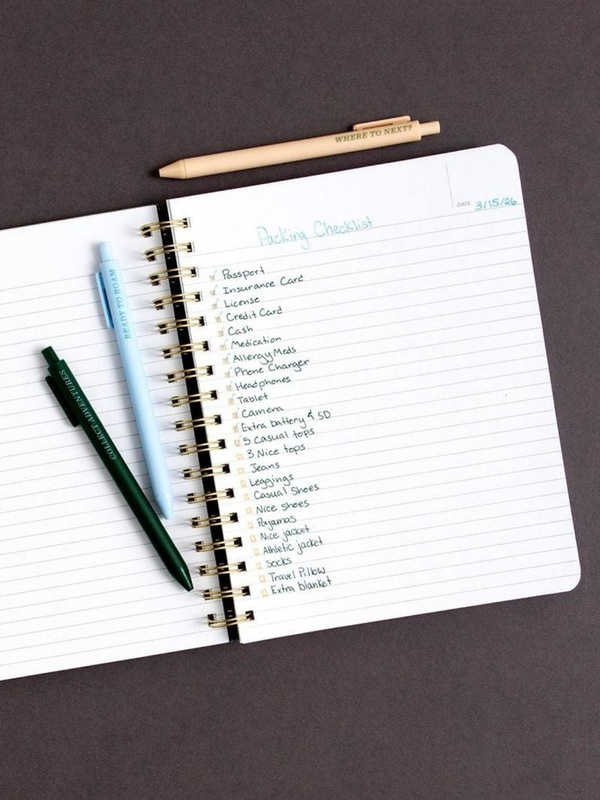 WHERE TO NEXT?
DATE 3/15/26
Packing Checklist
Passport
Insurance Card
License
Credit Card
Cash
Medication
Allergy Meds
Phone Charger
Headphones
Tablet
Camera
Extra battery & SD
5 Casual tops
3 Nice tops
Jeans
Leggings
Casual Shoes
Nice shoes
Pajamas
Nice jacket
Athletic jacket
Socks
Travel Pillow
Extra blanket
READY TO ROAM
COLLECT ADVENTURES